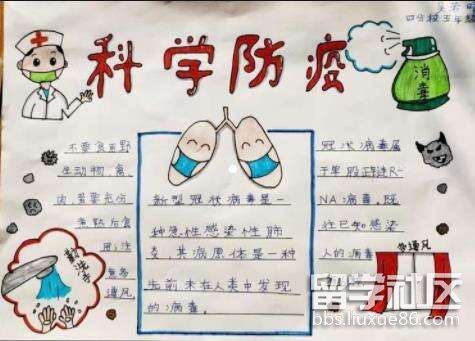 四分校五年级
科学防疫
消毒
不要食用野
生动物,禽
肉蛋要充分
煮熟后食
用,注
意多
通风。
勤洗手
新型冠状病毒是一
种急性感染性肺
炎,其病原体是一种
先前未在人类中发现
的病毒。
冠状病毒属
于单股正链R-
NA病毒,既
往已知感染
人的病毒
多通风
留学社区
bbs.liuxue86.com